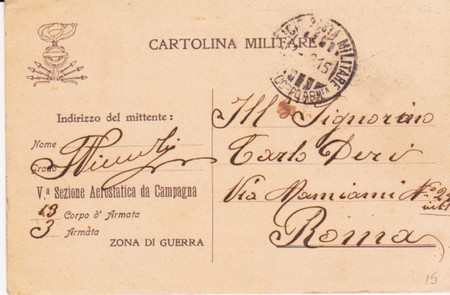 CARTOLINA MILITARE
MILITARE
15
Indirizzo del mittente:
Nome
Grado
Vª Sezione Aerostatica da Campagna
13 Corpo d' Armata
3 Armata
ZONA DI GUERRA
Ill Signorino
Carlo Peri
Via Mamiani No
Roma
15